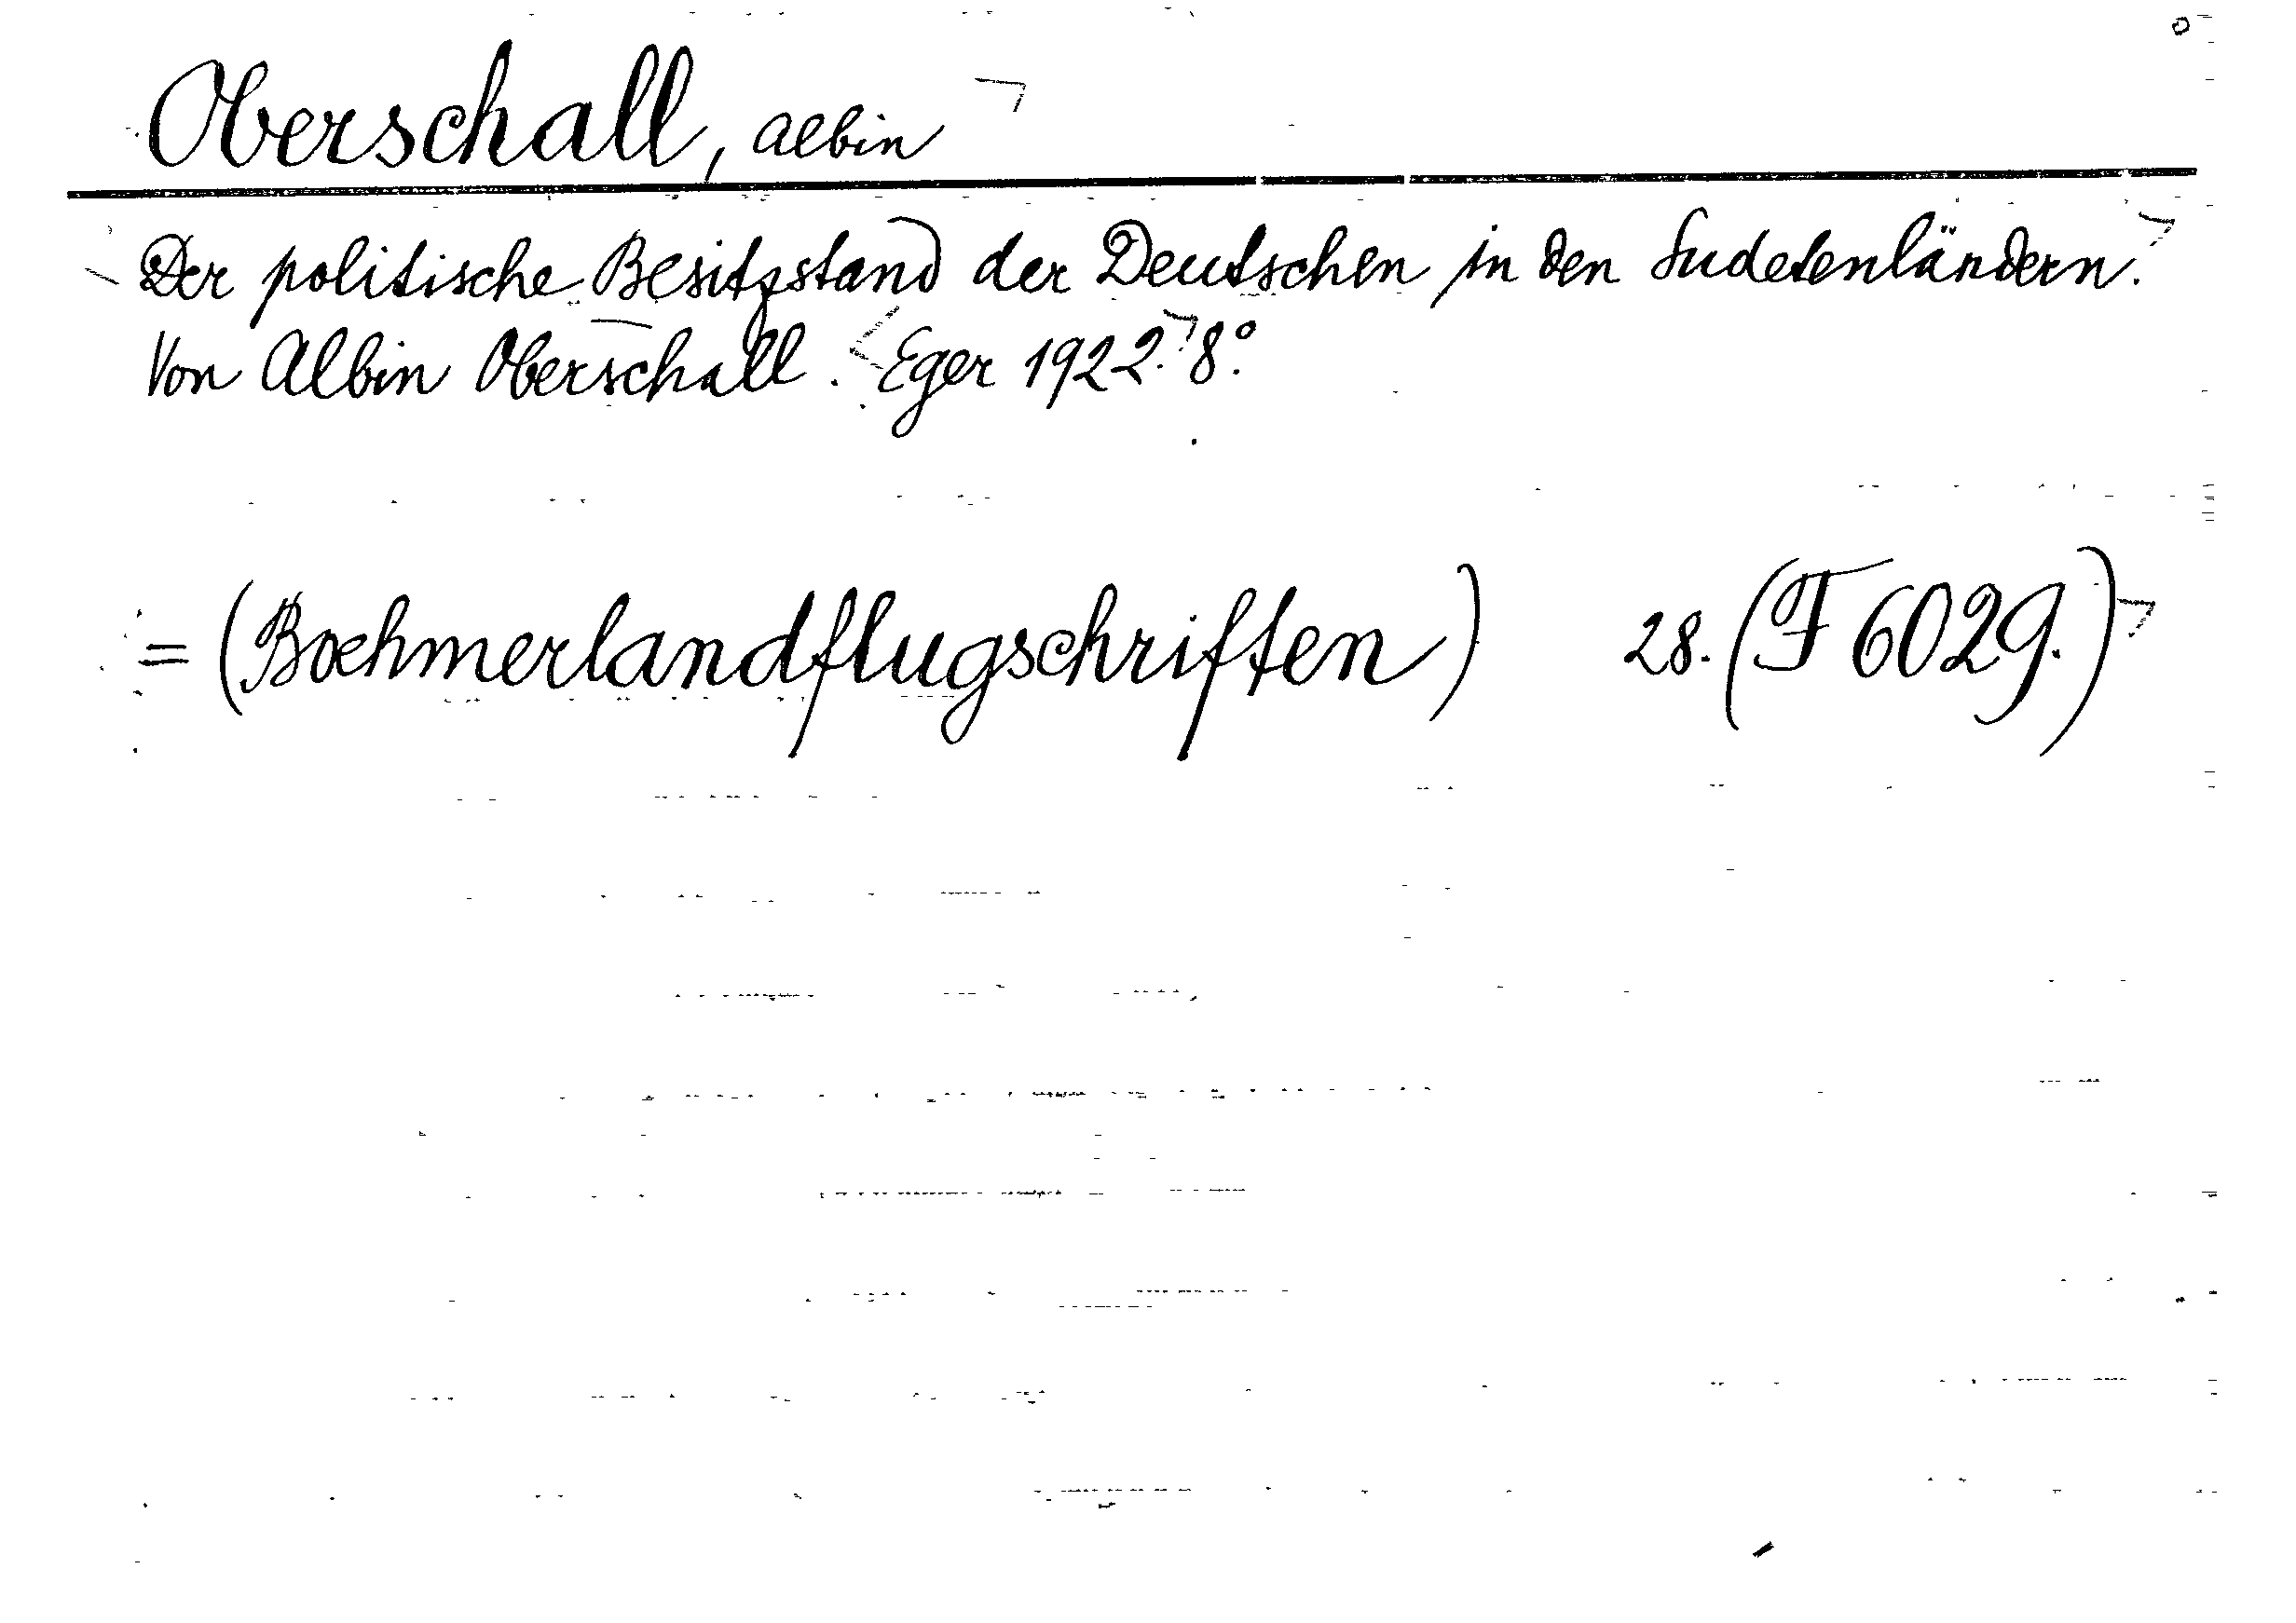 Oberschall, Albin
Der politische Besitzstand der Deutschen in den Sudetenländern.
Von Albin Oberschall. Eger 1922. 8°.
= (Boehmerlandflugschriften) 28. (F 6029.)